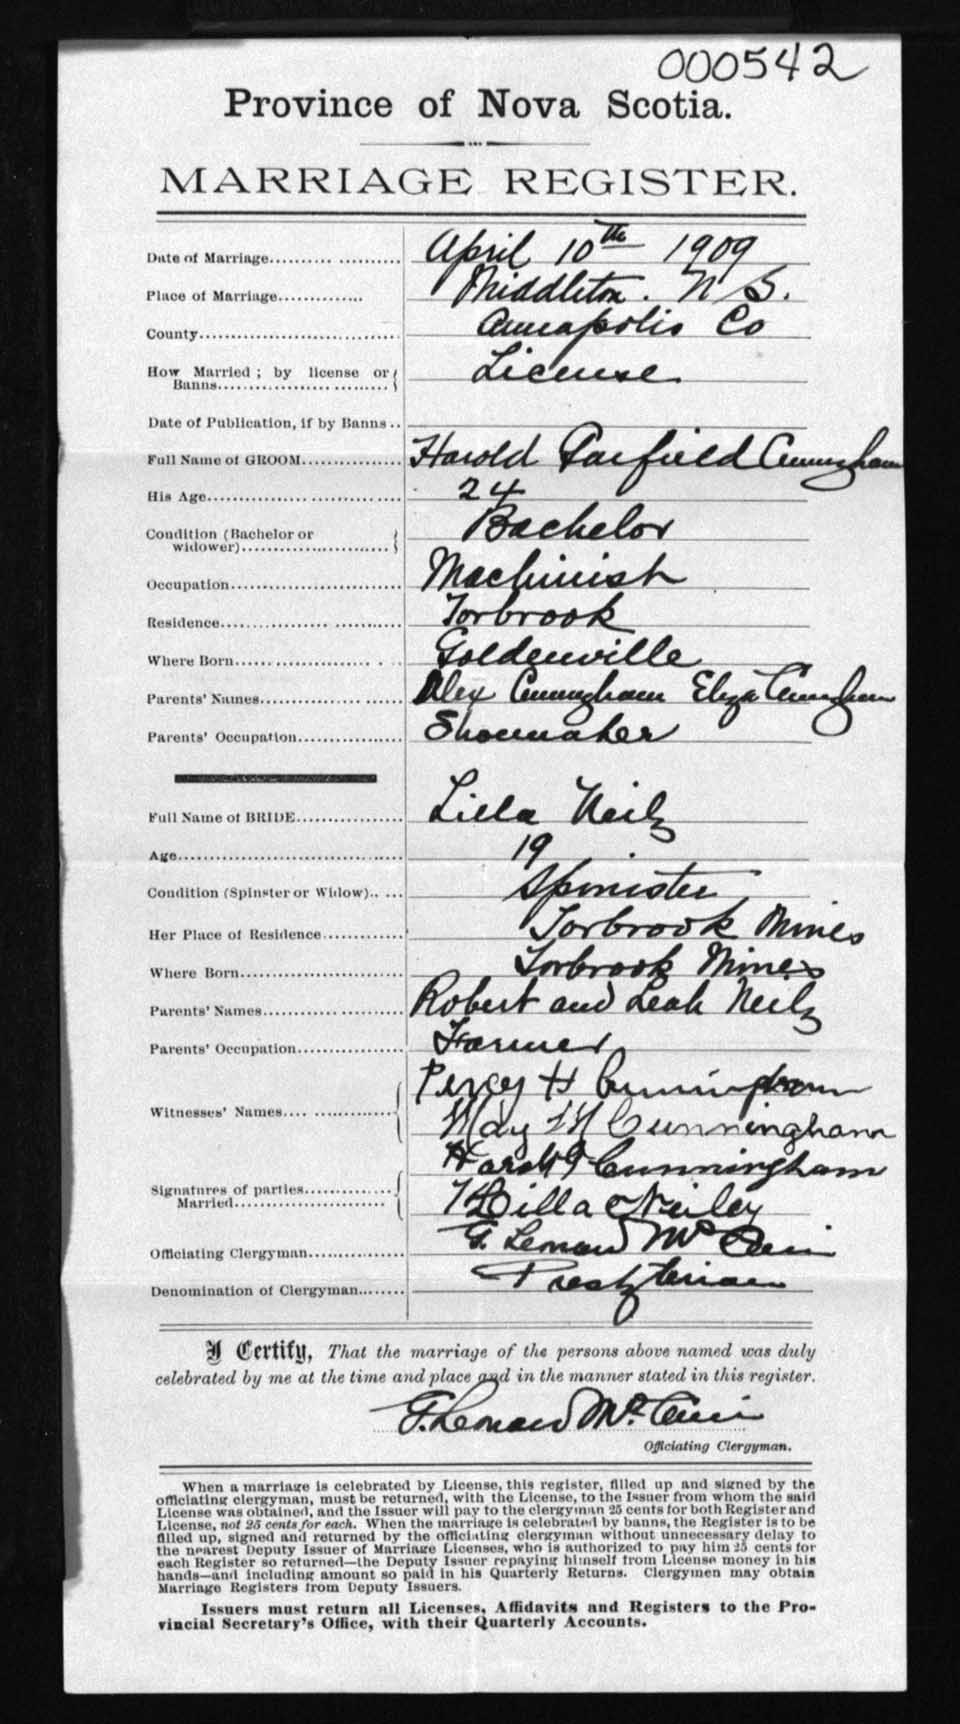 000542
Province of Nova Scotia.
MARRIAGE REGISTER.
Date of Marriage.... April 10th 1909
Place of Marriage.... Middleton. N S.
County.... Annapolis Co
How Married; by license or Banns.... License
Date of Publication, if by Banns..
Full Name of GROOM.... Harold Garfield Cunningham
His Age.... 24
Condition (Bachelor or widower).... Bachelor
Occupation.... Machinist
Residence.... Torbrook
Where Born.... Goldenville
Parents' Names.... Alex Cunningham Eliza Cunningham
Parents' Occupation.... Shoemaker
Full Name of BRIDE.... Lilla Neily
Age.... 19
Condition (Spinster or Widow).... Spinister
Her Place of Residence.... Torbrook Mines
Where Born.... Torbrook Mines
Parents' Names.... Robert and Leah Neily
Parents' Occupation.... Farmer
Witnesses' Names.... Percy H Cunningham
May Cunningham
Signatures of parties Married.... Harold G Cunningham
Lilla Neiley
Officiating Clergyman.... G. Leonard
Denomination of Clergyman.... Presbyterian
I Certify, That the marriage of the persons above named was duly
celebrated by me at the time and place and in the manner stated in this register.
G. Leonard
Officiating Clergyman.
When a marriage is celebrated by License, this register, filled up and signed by the
officiating clergyman, must be returned, with the License, to the Issuer from whom the said
License was obtained, and the Issuer will pay to the clergyman 25 cents for both Register and
License, not 25 cents for each. When the marriage is celebrated by banns, the Register is to be
filled up, signed and returned by the officiating clergyman without unnecessary delay to
the nearest Deputy Issuer of Marriage Licenses, who is authorized to pay him 25 cents for
each Register so returned—the Deputy Issuer repaying himself from License money in his
hands—and including amount so paid in his Quarterly Returns. Clergymen may obtain
Marriage Registers from Deputy Issuers.
Issuers must return all Licenses, Affidavits and Registers to the Pro-
vincial Secretary's Office, with their Quarterly Accounts.